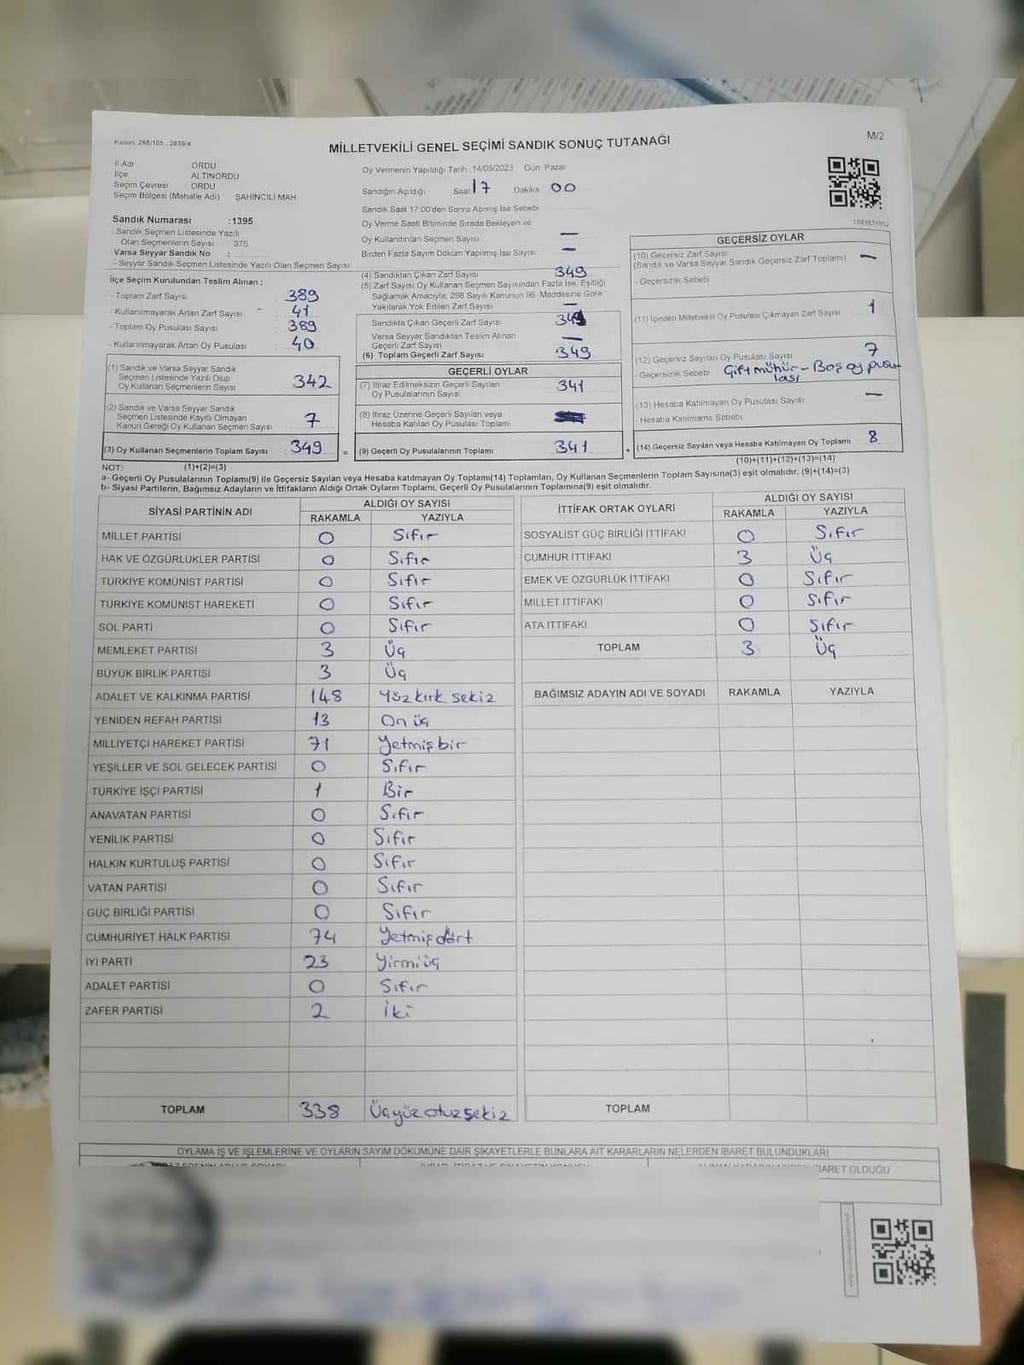 Kanun: 298/105, 2839/4
M/2
MİLLETVEKİLİ GENEL SEÇİMİ SANDIK SONUÇ TUTANAĞI
İl Adı ORDU
İlçe ALTINORDU
Seçim Çevresi ORDU
Seçim Bölgesi (Mahalle Adı) ŞAHİNCİLİ MAH
Sandık Numarası :1395
- Sandık Seçmen Listesinde Yazılı
Olan Seçmenlerin Sayısı : 375
Varsa Seyyar Sandık No :
- Seyyar Sandık Seçmen Listesinde Yazılı Olan Seçmen Sayısı :
İlçe Seçim Kurulundan Teslim Alınan :
- Toplam Zarf Sayısı 389
- Kullanılmayarak Artan Zarf Sayısı - 41
- Toplam Oy Pusulası Sayısı 389
- Kullanılmayarak Artan Oy Pusulası 40
(1) Sandık ve Varsa Seyyar Sandık
Seçmen Listesinde Yazılı Olup
Oy Kullanan Seçmenlerin Sayısı 342
(2) Sandık ve Varsa Seyyar Sandık
Seçmen Listesinde Kayıtlı Olmayan
Kanun Gereği Oy Kullanan Seçmen Sayısı 7
(3) Oy Kullanan Seçmenlerin Toplam Sayısı 349 =
Oy Vermenin Yapıldığı Tarih: 14/05/2023 Gün: Pazar
Sandığın Açıldığı Saat 17 Dakika 00
Sandık Saat 17:00'den Sonra Açılmış İse Sebebi
Oy Verme Saati Bitiminde Sırada Bekleyen ve
Oy Kullandırılan Seçmen Sayısı —
Birden Fazla Sayım Döküm Yapılmış İse Sayısı: —
(4) Sandıktan Çıkan Zarf Sayısı 349
(5) Zarf Sayısı Oy Kullanan Seçmen Sayısından Fazla İse, Eşitliği
Sağlamak Amacıyla; 298 Sayılı Kanunun 98. Maddesine Göre
Yakılarak Yok Edilen Zarf Sayısı —
Sandıkta Çıkan Geçerli Zarf Sayısı 349
Varsa Seyyar Sandıktan Teslim Alınan
Geçerli Zarf Sayısı —
(6) Toplam Geçerli Zarf Sayısı 349
GEÇERLİ OYLAR
(7) İtiraz Edilmeksizin Geçerli Sayılan
Oy Pusulalarının Sayısı 341
(8) İtiraz Üzerine Geçerli Sayılan veya
Hesaba Katılan Oy Pusulası Toplamı
(9) Geçerli Oy Pusulalarının Toplamı 341 +
GEÇERSİZ OYLAR
(10) Geçersiz Zarf Sayısı
(Sandık ve Varsa Seyyar Sandık Geçersiz Zarf Toplamı) —
- Geçersizlik Sebebi
(11) İçinden Milletvekili Oy Pusulası Çıkmayan Zarf Sayısı 1
(12) Geçersiz Sayılan Oy Pusulası Sayısı 7
- Geçersizlik Sebebi Çift mühür - Boş oy pusu
lası
(13) Hesaba Katılmayan Oy Pusulası Sayısı —
- Hesaba Katılmama Sebebi
(14) Geçersiz Sayılan veya Hesaba Katılmayan Oy Toplamı 8
(10)+(11)+(12)+(13)=(14)
NOT: (1)+(2)=(3)
a- Geçerli Oy Pusulalarının Toplamı(9) ile Geçersiz Sayılan veya Hesaba katılmayan Oy Toplam(14) Toplamları, Oy Kullanan Seçmenlerin Toplam Sayısına(3) eşit olmalıdır. (9)+(14)=(3)
b- Siyasi Partilerin, Bağımsız Adayların ve İttifakların Aldığı Ortak Oyların Toplamı, Geçerli Oy Pusulalarının Toplamına(9) eşit olmalıdır.
SİYASİ PARTİNİN ADI ALDIĞI OY SAYISI
RAKAMLA YAZIYLA
MİLLET PARTİSİ 0 Sıfır
HAK VE ÖZGÜRLÜKLER PARTİSİ 0 Sıfır
TÜRKİYE KOMÜNİST PARTİSİ 0 Sıfır
TÜRKİYE KOMÜNİST HAREKETİ 0 Sıfır
SOL PARTİ 0 Sıfır
MEMLEKET PARTİSİ 3 Üç
BÜYÜK BİRLİK PARTİSİ 3 Üç
ADALET VE KALKINMA PARTİSİ 148 Yüz kırk sekiz
YENİDEN REFAH PARTİSİ 13 On üç
MİLLİYETÇİ HAREKET PARTİSİ 71 Yetmiş bir
YEŞİLLER VE SOL GELECEK PARTİSİ 0 Sıfır
TÜRKİYE İŞÇİ PARTİSİ 1 Bir
ANAVATAN PARTİSİ 0 Sıfır
YENİLİK PARTİSİ 0 Sıfır
HALKIN KURTULUŞ PARTİSİ 0 Sıfır
VATAN PARTİSİ 0 Sıfır
GÜÇ BİRLİĞİ PARTİSİ 0 Sıfır
CUMHURİYET HALK PARTİSİ 74 Yetmiş dört
İYİ PARTİ 23 Yirmi üç
ADALET PARTİSİ 0 Sıfır
ZAFER PARTİSİ 2 İki
TOPLAM 338 Üçyüz otuz sekiz
İTTİFAK ORTAK OYLARI ALDIĞI OY SAYISI
RAKAMLA YAZIYLA
SOSYALİST GÜÇ BİRLİĞİ İTTİFAKI 0 Sıfır
CUMHUR İTTİFAKI 3 Üç
EMEK VE ÖZGÜRLÜK İTTİFAKI 0 Sıfır
MİLLET İTTİFAKI 0 Sıfır
ATA İTTİFAKI 0 Sıfır
TOPLAM 3 Üç
BAĞIMSIZ ADAYIN ADI VE SOYADI RAKAMLA YAZIYLA
TOPLAM
OYLAMA İŞ VE İŞLEMLERİNE VE OYLARIN SAYIM DÖKÜMÜNE DAİR ŞİKAYETLERLE BUNLARA AİT KARARLARIN NELERDEN İBARET BULUNDUKLARI
İBARET OLDUĞU